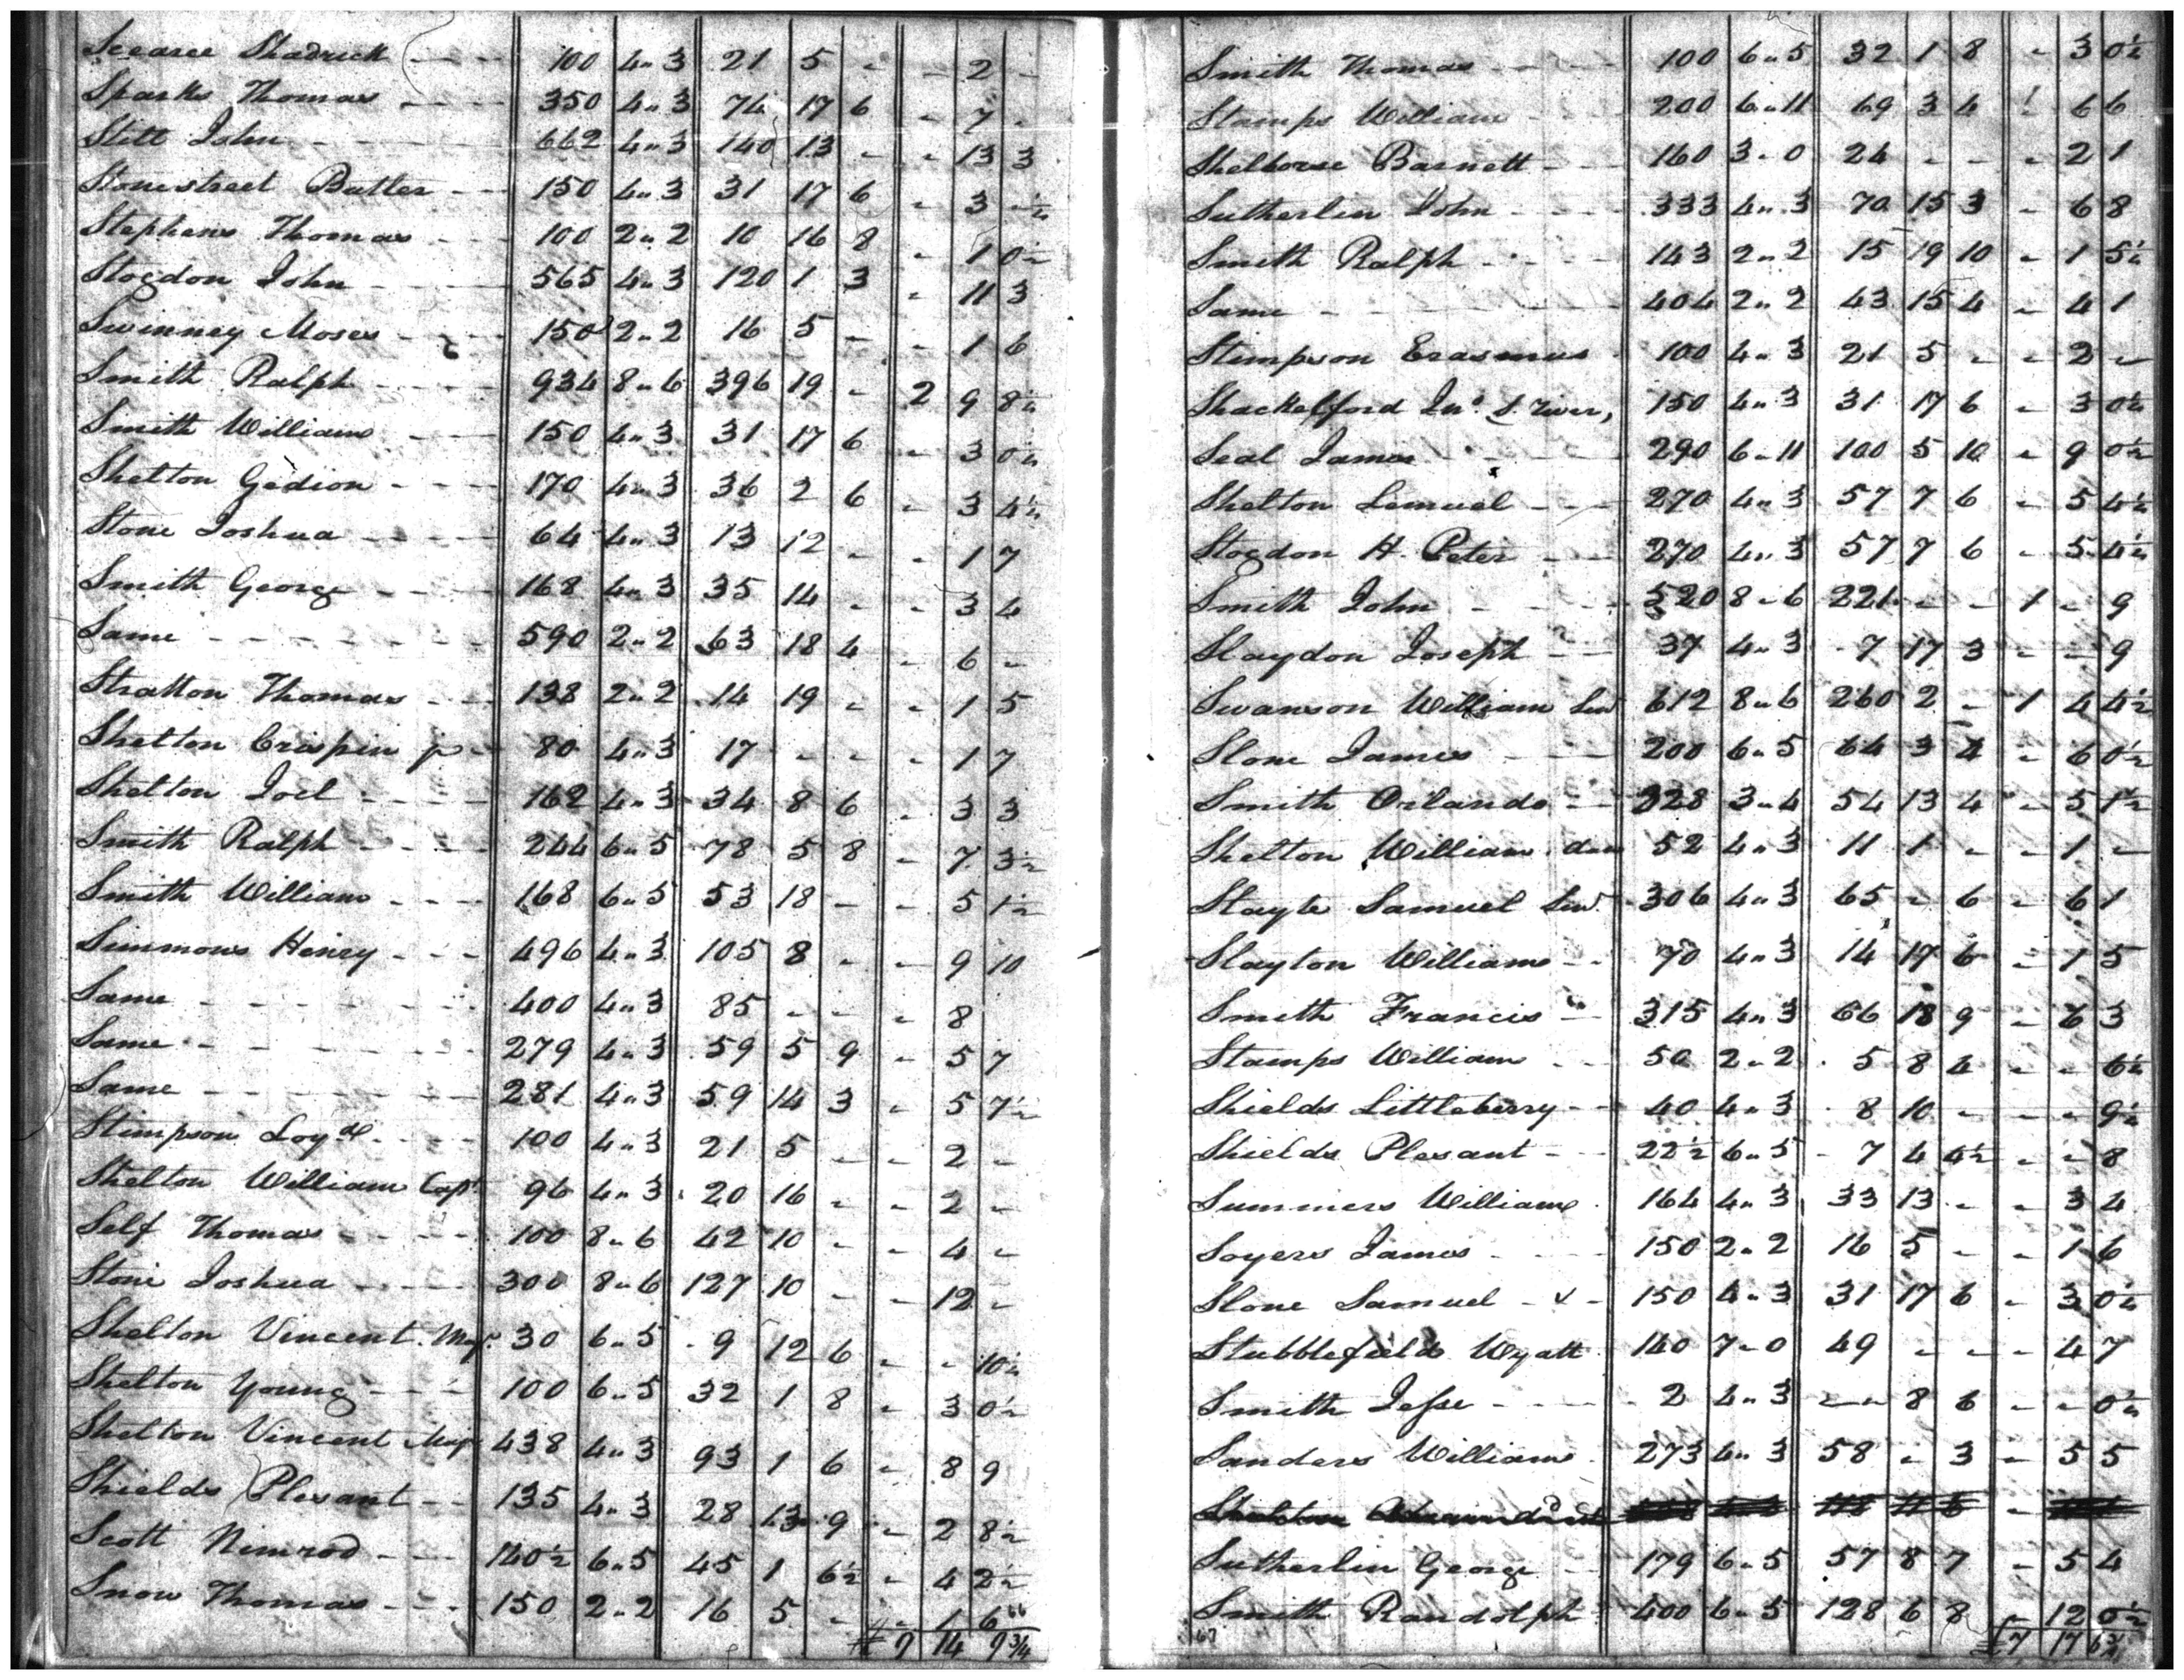 Scearce Shadrick 100 4„3 21 5 - - 2 -
Sparks Thomas 350 4„3 74 17 6 - 7 -
Stitt John 662 4„3 140 13 - - 13 3
Stonestreet Butler 150 4„3 31 17 6 - 3 -½
Stephens Thomas 100 2„2 10 16 8 - 1 0½
Stogdon John 565 4„3 120 1 3 - 11 3
Swinney Moses 150 2„2 16 5 - - 1 6
Smith Ralph 934 8„6 396 19 - 2 9 8½
Smith William 150 4„3 31 17 6 - 3 0½
Shelton Gedion 170 4„3 36 2 6 - 3 4½
Stone Joshua 64 4„3 13 12 - - 1 7
Smith George 168 4„3 35 14 - - 3 4
Same 590 2„2 63 18 4 - 6 -
Stratton Thomas 138 2„2 14 19 - - 1 5
Shelton Crispin jr 80 4„3 17 - - - 1 7
Shelton Joel 162 4„3 34 8 6 - 3 3
Smith Ralph 244 6„5 78 5 8 - 7 3½
Smith William 168 6„5 53 18 - - 5 1½
Simmons Henry 496 4„3 105 8 - - 9 10
Same 400 4„3 85 - - - 8
Same 279 4„3 59 5 9 - 5 7
Same 281 4„3 59 14 3 - 5 7½
Stimpson Loyd 100 4„3 21 5 - - 2 -
Shelton William Capt 96 4„3 20 16 - - 2 -
Self Thomas 100 8„6 42 10 - - 4 -
Stone Joshua 300 8„6 127 10 - - 12 -
Shelton Vincent. Maj. 30 6„5 9 12 6 - - 10½
Shelton Young 100 6„5 32 1 8 - 3 0½
Shelton Vincent Maj 438 4„3 93 1 6 - 8 9
Shields Plesant 135 4„3 28 13 9 - 2 8½
Scott Nimrod 140½ 6„5 45 1 6½ - 4 2½
Snow Thomas 150 2„2 16 5 - - 1 6
9 3/4
Smith Thomas 100 6„5 32 1 8 - 3 0½
Stamps William 200 6„11 69 3 4 - 6 6
Shelhorse Barnett 160 3„0 24 - - - 2 1
Sutherlin John 333 4„3 70 15 3 - 6 8
Smith Ralph 143 2„2 15 19 10 - 1 5½
Same 404 2„2 43 15 4 - 4 1
Stimpson Erasmus 100 4„3 21 5 - - 2 -
Shackelford Jno. S. River, 150 4„3 31 17 6 - 3 0½
Seal James 290 6„11 100 5 10 - 9 0½
Shelton Lemuel 270 4„3 57 7 6 - 5 4½
Stogdon H. Peter 270 4„3 57 7 6 - 5 4½
Smith John 520 8„6 221 - - 1 - 9
Slaydon Joseph 37 4„3 7 17 3 - - 9
Swanson William Senr 612 8„6 260 2 - 1 4 4½
Stone James 200 6„5 64 3 4 - 6 0½
Smith Orlando 328 3„4 54 13 4 - 5 1½
Shelton William 52 4„3 11 1 - - 1 -
Slayte Samuel Senr. 306 4„3 65 - 6 - 6 1
Slayton William 70 4„3 14 17 6 - 1 5
Smith Francis 315 4„3 66 18 9 - 6 3
Stamps William 50 2„2 5 8 4 - - 6½
Shields Littleberry 40 4„3 8 10 - - - 9½
Shields Plesant 22½ 6„5 7 4 4½ - - 8
Summers William 164 4„3 33 13 - - 3 4
Soyers James 150 2„2 16 5 - - 1 6
Stone Samuel 150 4„3 31 17 6 - 3 0½
Stubblefield Wyatt 140 7„0 49 - - - 4 7
Smith Jesse 2 4„3 - 8 6 - - 0½
Sanders William 273 4„3 58 - 3 - 5 5
Shelton
Sutherlin George 179 6„5 57 8 7 - 5 4
Smith Randolph 400 6„5 128 6 8 - 12 0½
67 £7 17